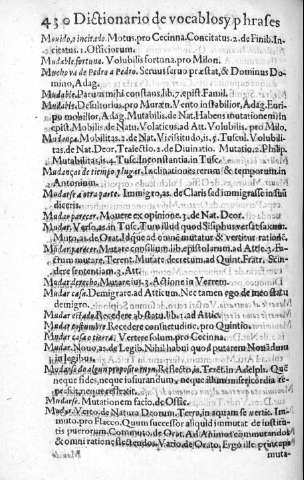 430 Dictionario de vocablos y phrases
Mouido, o incitado. Motus. pro Cecinna. Concitatus. 2. de Finib. In
citatus. 1. Officiorum.
Mudable fortuna. Volubilis fortuna. pro Milon.
Mucho va de Pedro a Pedro. Seruus seruo præstat, & Dominus Do
mino, Adag.
Mudable. Parum mihi constans. lib. 7. epist. Famil.
Mudable. Desultorius. pro Muræn. Vento instabilior, Adag. Euri
po mobilior, Adag. Mutabilis. de Nat. Habens mutationem in
epist. Mobilis. de Natu. Volaticus ad Att. Volubilis. pro Milo,
Mudança. Mobilitas. 2. de Nat. Vicissitudo, is. 5. Tuscul. Volubili
tas. de Nat. Deor. Traiectio. 2. de Diuinatio. Mutatio. 2. Philip.
Mutabilitas, is. 4. Tusc. Inconstantia. in Tusc.
Mudanças de tiempo y lugar. Inclinationes rerum & temporum. in
Antonium.
Mudarse a otra parte. Immigro, as. de Claris sed immigrasse in
diceris.
Mudar parecer. Mouere ex opinione. 3. de Nat. Deor.
Mudar. Verso, as. in Tusc. Tum illud quod Sisiphus versat saxum.
Muto, as. de Orat. Idque ad omne mutatur & vertitur ratione.
Mudar parecer. Mutare consilium. lib. epistolarum, ad Attic. 3.
ctum mutare, Terent. Mutare decretum, ad Quint. Fratr. Scin
dere sententiam. 3. Att.
Mudar derecho. Mutare ius. 3. Actione in Verrem.
Mudar casa. Demigrare. ad Atticum. Nec tamen ego de meo statu
demigro.
Mudar estado. Recedere ab statu. lib. 1. ad Attic.
Mudar costumbre. Recedere consuetudine. pro Quintio.
Mudar casa o tierra; Vertere solum. pro Cecinna.
Mudar. Nouo, as. de Legib. Nihil habui quod putarem Nouandum
in legibus.
Mudarse de algun proposito suyo. Reflecto, is. Teret. in Adelph. Quē
neque fides, neque iusiurandum, neque illum misericordia re
pressit, neque reflexit.
Mudarse. Mutationem facio. de Offic.
Mudar. Verto. de Natura Deorum. Terra, in aquam se vertit. Im
muto. pro Flacco. Quum successor aliquid immutat de institu
tis puerorum. Commuto. de Orat. Ad Animos commutandos
& omni ratione flectendos. Vario. de Orato. Ergo ille principia
muta-